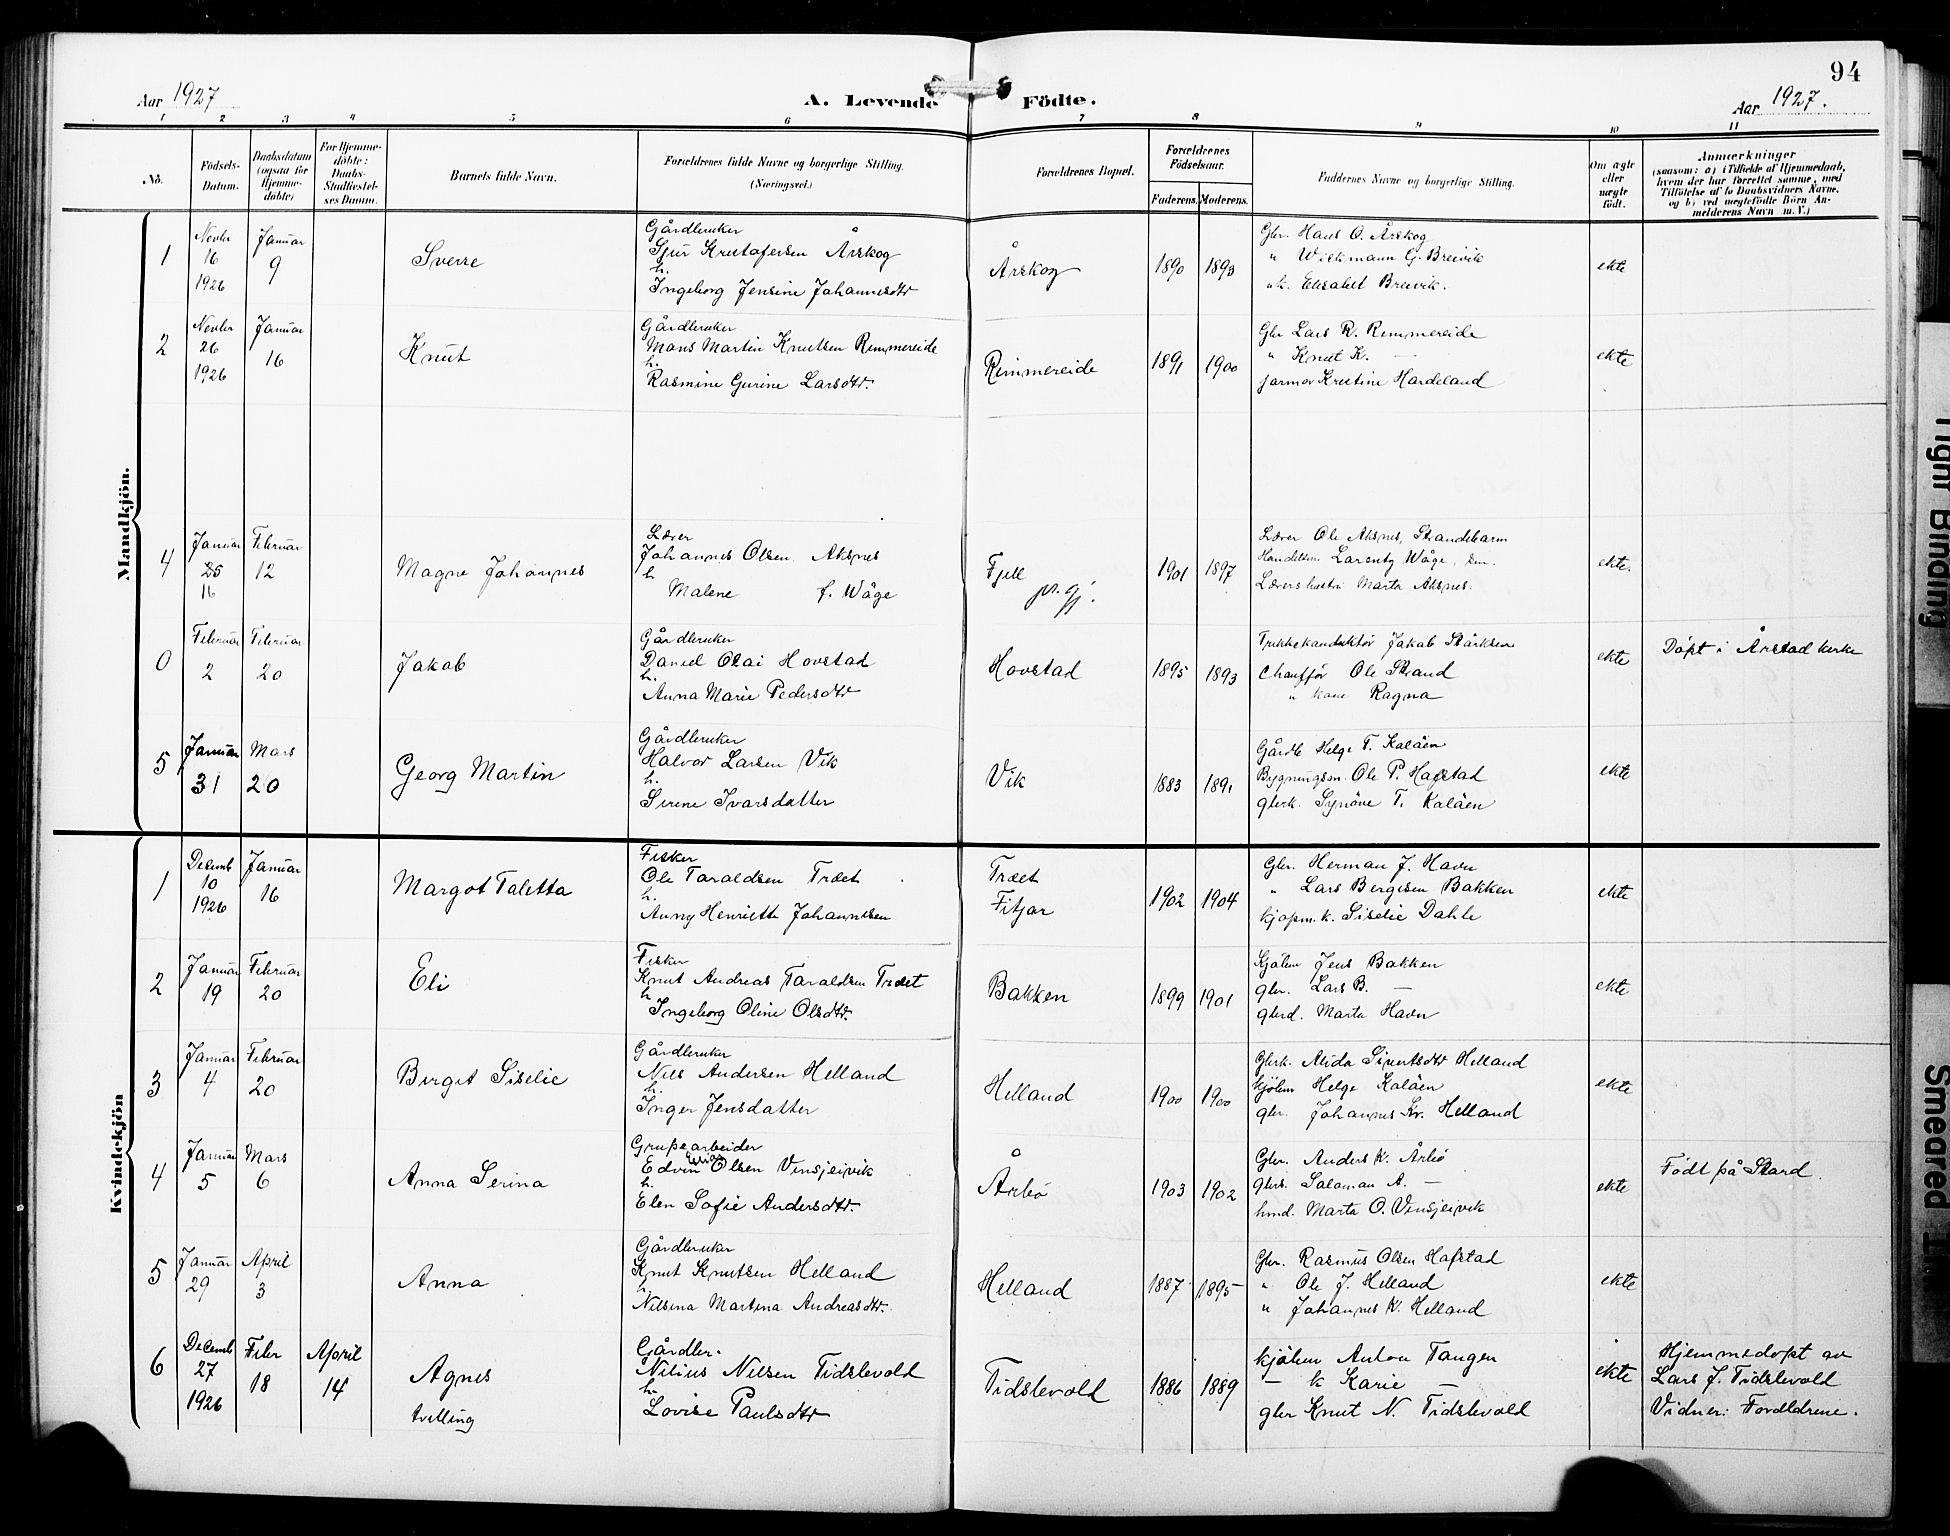 94
Aar 1927
A. Levende Födte.
Aar 1927.
1 2 3 4 5 6 7 8 9 10 11
No.
Födsels-Datum.
Daabsdatum (ogsaa for Hjemme-döbte)
For Hjemme-döbte: Daabs-Stadfæstel-ses Datum.
Barnets fulde Navn.
Forældrenes fulde Navne og borgerlige Stilling. (Næringsvei.)
Forældrenes Bopæl.
Forældrenes Födselsaar.
Faderens. Moderens.
Faddernes Navne og borgerlige Stilling.
Om ægte eller uægte födt.
Anmærkninger
(saasom: a) i Tilfælde af Hjemmedaab, hvem der har forrettet samme, med Tilföielse af to Daabsvidners Navne, og b) ved uægtefödte Börn An-melderens Navn m. V.)
Mandkjön.
1
Novbr 16 1926
Januar 9
Sverre
Gårdbruker
Sjur Kristofersen Årskog
h.
Ingeborg Jensine Johannesdtr
Årskog
1890 1893
Gbr. Hans O. Årskog
" Wickmann G. Breivik
" k. Elisabet Breivik.
ekte
2
Novbr 26 1926
Januar 16
Knut
Gårdbruker
Mons Martin Knutsen Rimmereide
h.
Rasmine Gurine Larsdtr.
Rimmereide
1891 1900
Gbr Lars R. Rimmereide
" Knut K. —
jarmor Kristine Hardeland
ekte
4
Januar 25 16
Februar 12
Magne Johannes
Lærer
Johannes Olsen Aksnes
h
Malene f. Wåge
Fjell pr. gj.
1901 1897
Lærer Ole Aksnes, Strandebarm
Handelsm. Larentz Wåge,
Lærershustru Marta Aksnes.
ekte.
0
Februar 2
Februar 20
Jakob
Gårdbruker
Daniel Olai Hovstad
h.
Anna Marie Pedersdtr
Hovstad
1895 1893
Trikkekonduktör Jakob Stärksen
Chaufför Ole Strand
" kone Ragna
ekte
Döpt i Årstad kirke
5
Januar 31
Mars 20
Georg Martin
Gårdbruker
Halvor Larsen Vik
h.
Sirene Ivarsdatter
Vik
1883 1891
Gårdb Helge T. Kalåen
Bygningsm. Ole P. Hafstad
gbrk. Synöve T. Kalåen
ekte
Kvindekjön
1
Decemb 10 1926
Januar 16
Margot Taletta
Fisker
Ole Taraldsen Træet
h.
Anny Henriette Johannesen
Træet
Fitjar
1902 1904
Gbr. Herman J. Havn
" Lars Bergesen Bakken
kjøpm. k. Siselie Dahle
ekte
2
Januar 19
Februar 20
Eli
Fisker
Knut Andreas Taraldsen Træet
h
Ingeborg Oline Olsdtr.
Bakken
1899 1901
Kjölem Jens Bakken
gbr. Lars B. —
gbrd. Marta Havn
ekte
3
Januar 4
Februar 20
Birgit Siselie
Gårdbruker
Nils Andersen Helland
h.
Inger Jensdatter
Helland
1900 1900
Gbrk. Alida Sivertsdtr Helland
kjölem Helge Kalåen
gbr. Johannes Kr. Helland
ekte
4
Januar 5
Mars 6
Anna Serina
Grubearbeider
Edvin Olsen Vinsjeivik
h.
Elen Sofie Andersdtr.
Årbö
1903 1902
Gbr. Anders K. Årbö
gbrk. Salamon A. —
hmd. Marta O. Vinsjeivik
ekte
Födt på Stord.
5
Januar 29
April 3
Anna
Gårdbruker
Knut Knutsen Helland
h.
Nilsina Martina Andreasdtr.
Helland
1887 1895
Gbr. Rasmus Olsen Hafstad
" Ole J. Helland
" Johannes K. Helland
ekte
6
Decemb 27 1926
Febr 18
April 14
Agnes
tvilling
Gårdbr.
Nilius Nilsen Tidslevold
h.
Lovise Paulsdtr
Tidslevold
1886 1889
kjölem Anton Tangen
— k Karie —
gbr Knut N. Tidslevold
ekte
Hjemmedöpt av
Lars J. Tidslevold
Vidner: Foreldrene.
Tight Binding
Smeared